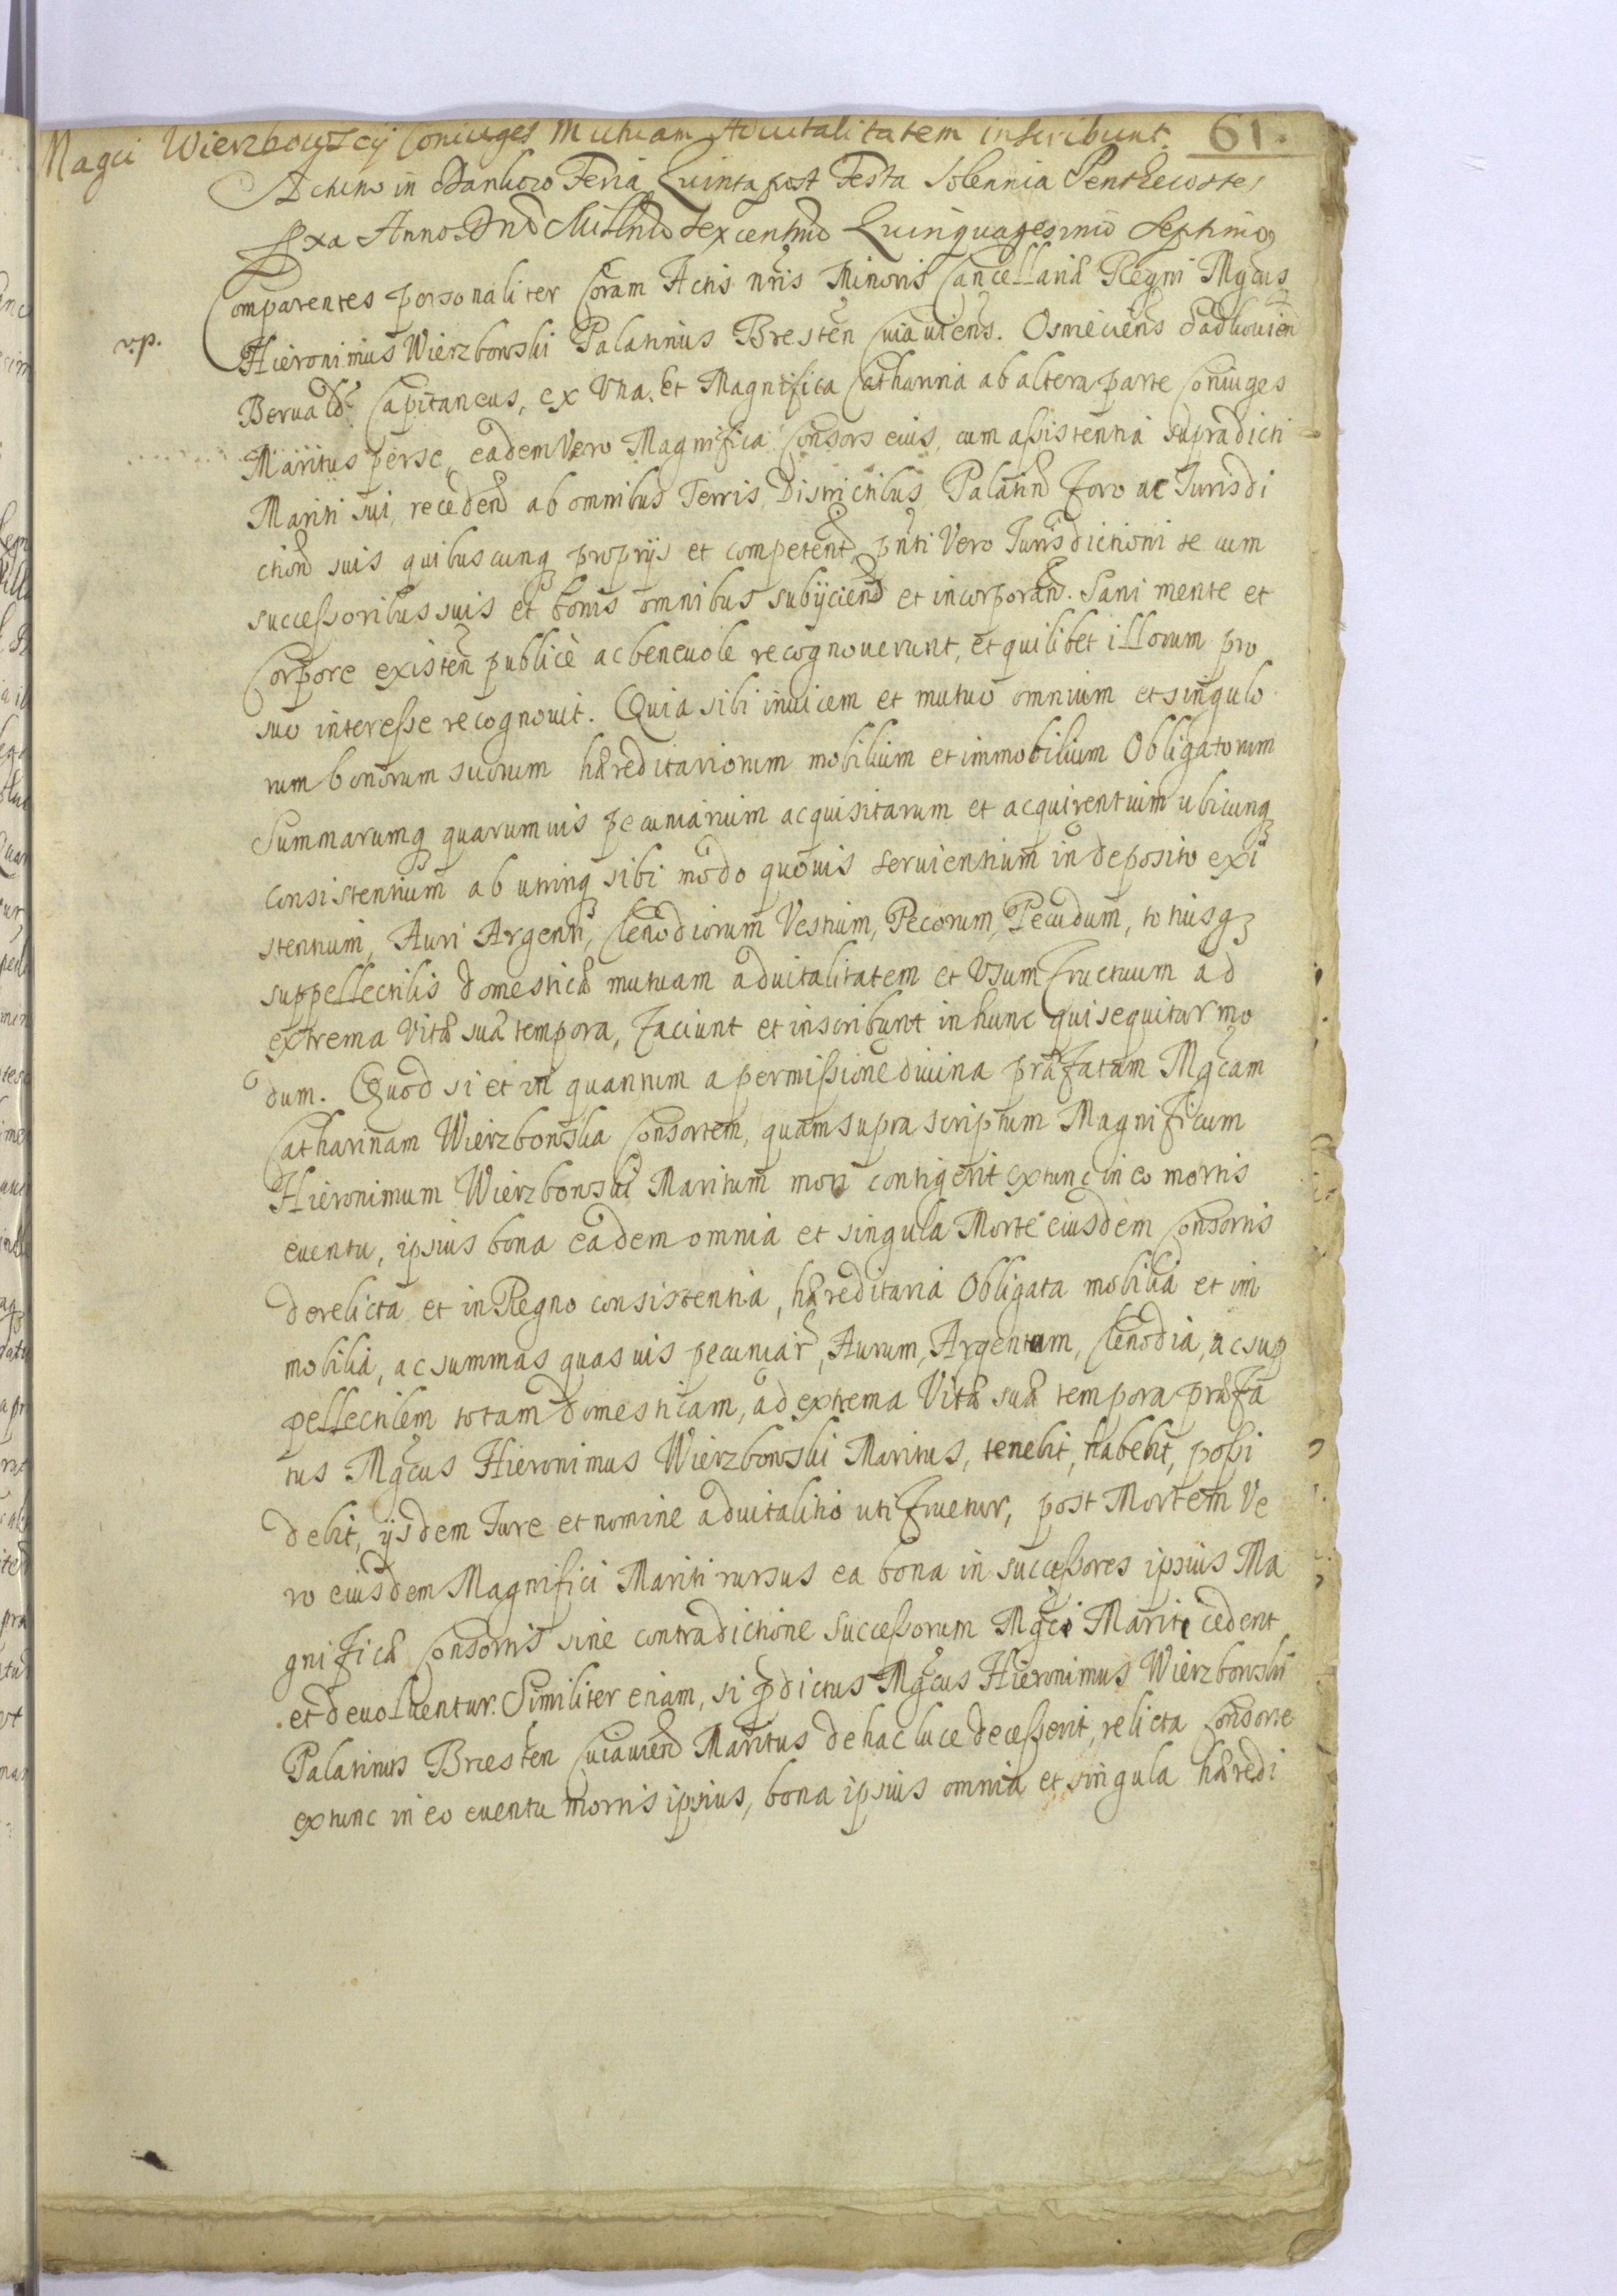 Magci Wierzbowscÿ Coniuges Mutuam Aduitalitatem inscribunt. 61.
Actum in Dankow Feria Quinta post Festa Solennia Penthecostes
Sexa Anno Dnō Millmō Sexcentmō Quinquagesimo Septimo
Comparentes personaliter Coram Actis nr̄is Minoris Cancellariæ Regni Mgcus
v.p.
Hieronimus Wierzbowski Palatinus Bresten Cuiauiens. Osmeciens Sadkouien
Beruald. Capitaneus, ex Vna. Et Magnifica Catharina ab altera parte Coniuges
Maritus perse, eadem Vero Magnifica Consors eius, cum assistentia supradicti
Mariti sui, recedend ab omnibus Terris, Districtibus Palatind Foro ac Jurisdi
ctiond suis quibuscunq proprijs et competentd pn̄ti Vero Jurisdictioni se cum
successoribus suis et bonis omnibus subijciend et incorporand. Sani mente et
Corpore existen publicè ac beneuole recognouerunt, et quilibet illorum pro
suo interesse recognouit. Quia sibi inuicem et mutuo omnium et singulo
rum bonorum suorum hæreditariorum mobilium et immobilium Obligatorum
Summarumq quarumuis pecuniarium acquisitarum et acquirentium ubicunq
consistentium ab utrinq sibi modo quouis seruientium in deposito exi
stentium, Auri Argenti, Clenodiorum Vestium, Pecorum, Pecudum, totiusq
suppellectilis domesticæ mutuam aduitalitatem et Vsum Fructuum ad
extrema Vitæ suæ tempora, Faciunt et inscribunt in hunc qui sequitur mo
dum. Quod si et in quantum a permissione diuina præfatam Mgcam
Catharinam Wierzbowska Consortem, quam supra scriptum Magnificum
Hieronimum Wierzbowski Maritum mori contigerit extunc in eo mortis
euentu, ipsius bona eadem omnia et singula Morte eiusdem Consortis
derelicta et in Regno consistentia, hæreditaria Obligata mobilia et im
mobilia, ac summas quasuis pecuniar, Aurum, Argentum, Clenodia, ac sup
pellectilem totam domesticam, ad extrema Vitæ suæ tempora præfa
tus Mgcus Hieronimus Wierzbowski Maritus, tenebit, habebit, possi
debit, ijsdem Jure et nomine aduitalitio uti fruetur, post Mortem Ve
ro eiusdem Magnifici Mariti rursus ea bona in successores ipsius Ma
gnificæ Consortis sine contradictione successorum Mgci Mariti cedent
et deuoluentur. Similiter etiam, si p̄dictus Mgcus Hieronimus Wierzbowski
Palatinus Briesten Cuiauiend Maritus de hac luce decesserit, relicta Consorte
extunc in eo euentu mortis ipsius, bona ipsius omnia et singula hæredi